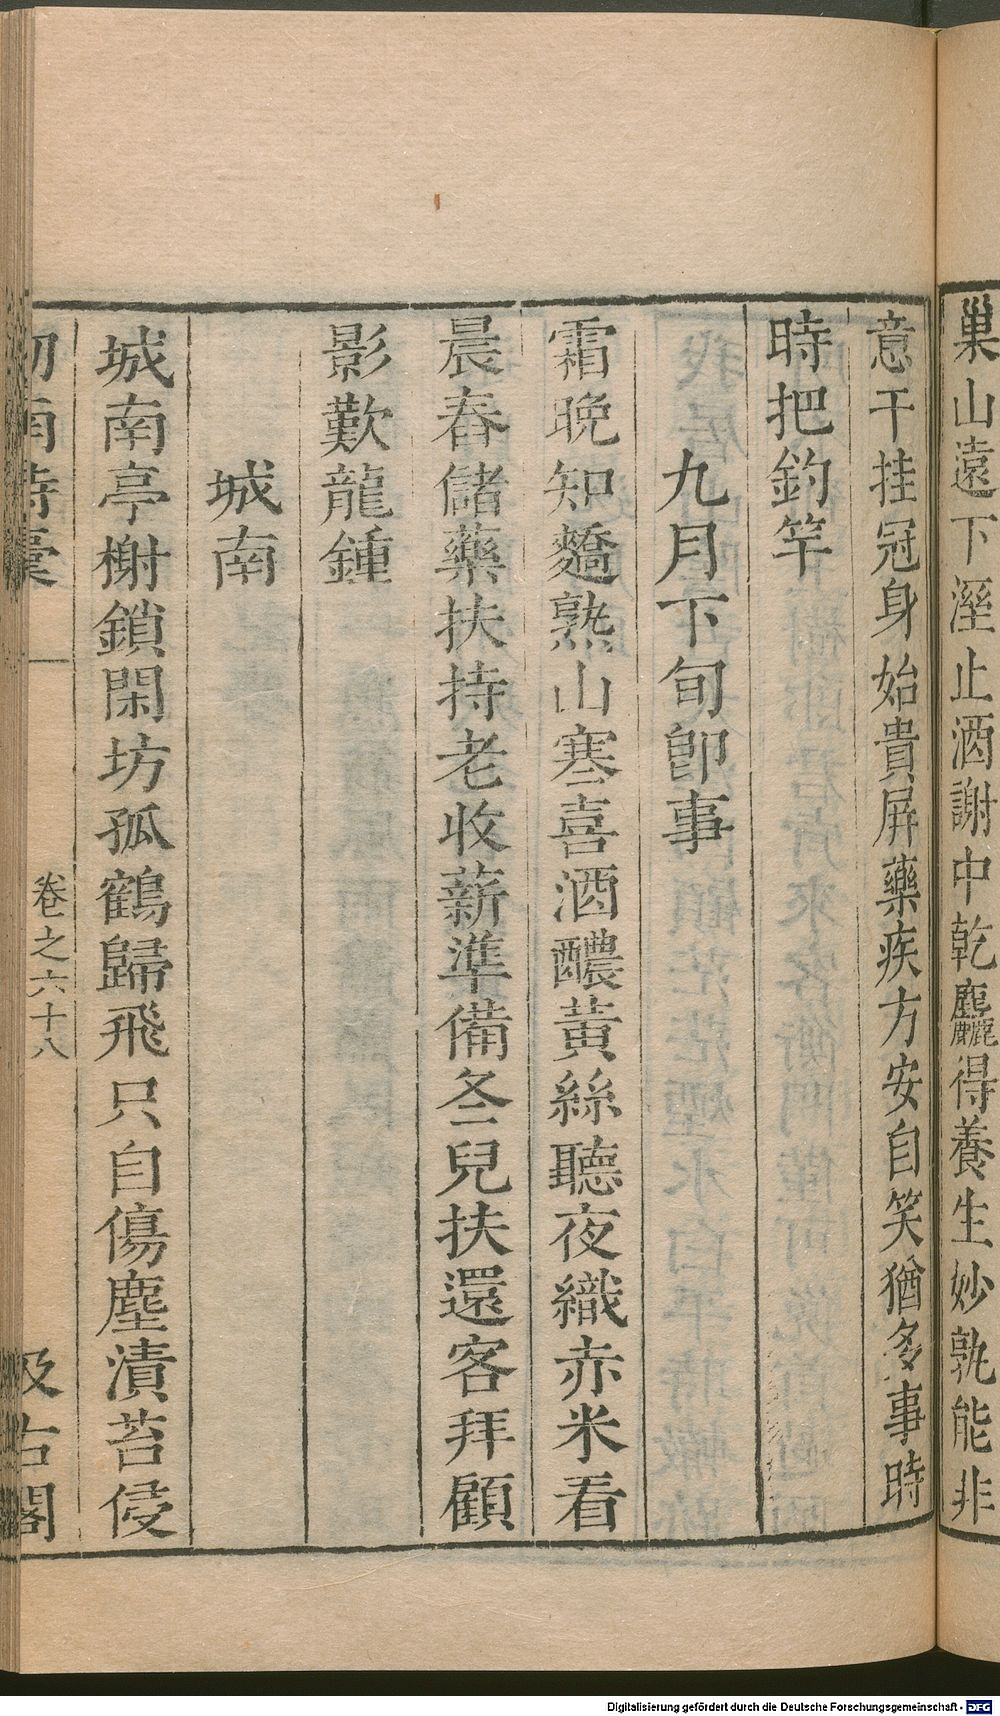 巢山遠下溼止酒謝中乾麈麤得養生妙孰能非
意干挂冠身始貴屏藥疾方安自笑猶多事時
時把釣竿
九月下旬卽事
霜晚知蕎熟山寒喜酒醲黃絲聽夜織赤米看
晨舂儲藥扶持老收薪準備冬兒扶還客拜顧
影歎龍鍾
城南
城南亭榭鎖閑坊孤鶴歸飛只自傷塵漬苔侵
卷之六十八
汲古閣
Digitalisierung gefördert durch die Deutsche Forschungsgemeinschaft - DFG